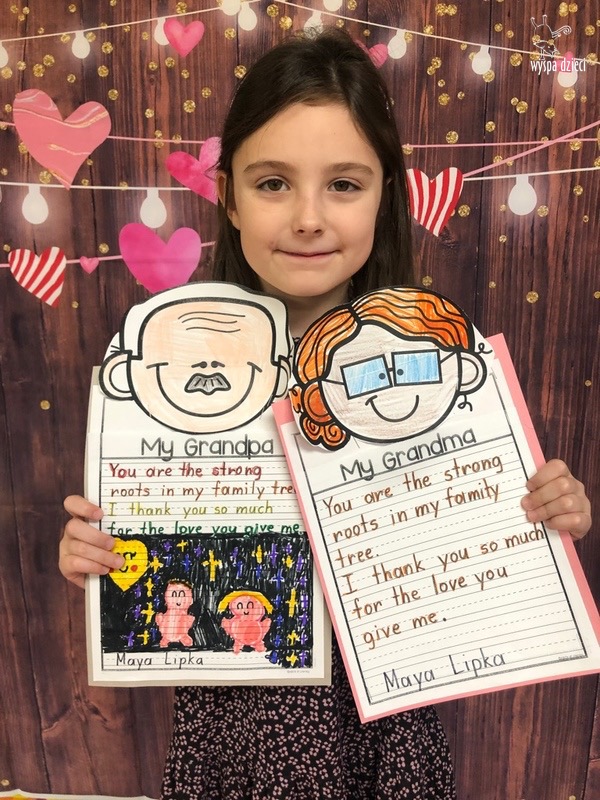 wyspa dzieci
My Grandpa
You are the strong
roots in my family tree
I thank you so much
for the love you give me
Maya Lipka
My Grandma
You are the strong
roots in my family
tree.
I thank you so much
for the love you
give me.
Maya Lipka